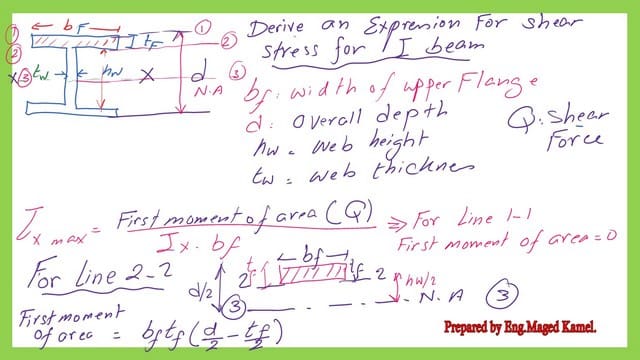 Derive an Expression for shear
stress for I beam
① bf ① tf ②
②
X ③ tw hw X d ③
N.A
bf: width of upper Flange
d: overall depth
hw = web height
tw = web thicknes
Q: shear
Force
τx max = First moment of area (Q) / Ix. bf ⇒ For Line 1-1
First moment of area = 0
For Line 2-2
d/2 2 tf bf tf 2 hw/2
③ N.A ③
First moment
of area = bf tf (d/2 - tf/2)
Prepared by Eng.Maged Kamel.